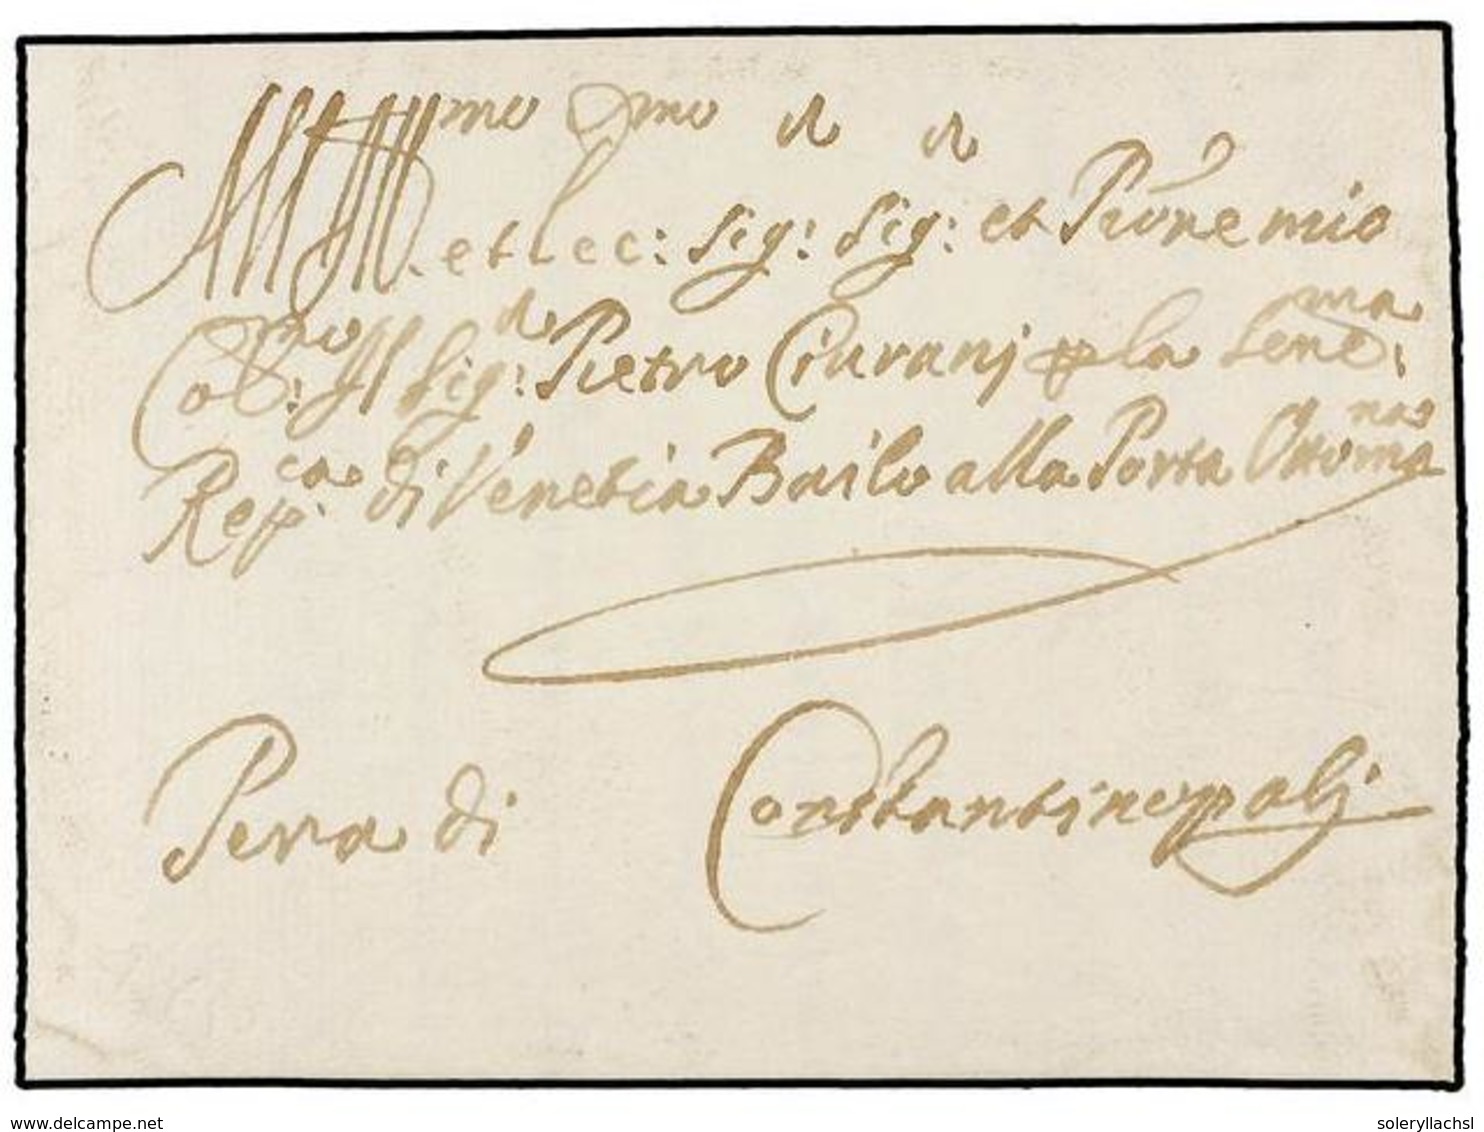 Ill.mo et Ecc.mo Sig.r Sig.r et P'rone mio
Col.mo Il Sig.r Pietro Ciurani p la Sere.ma
Rep.ca di Venetia Bailo alla Porta Ottoma.na
Pera di Constantinopoli
www.delcampe.net
soleryllachsl